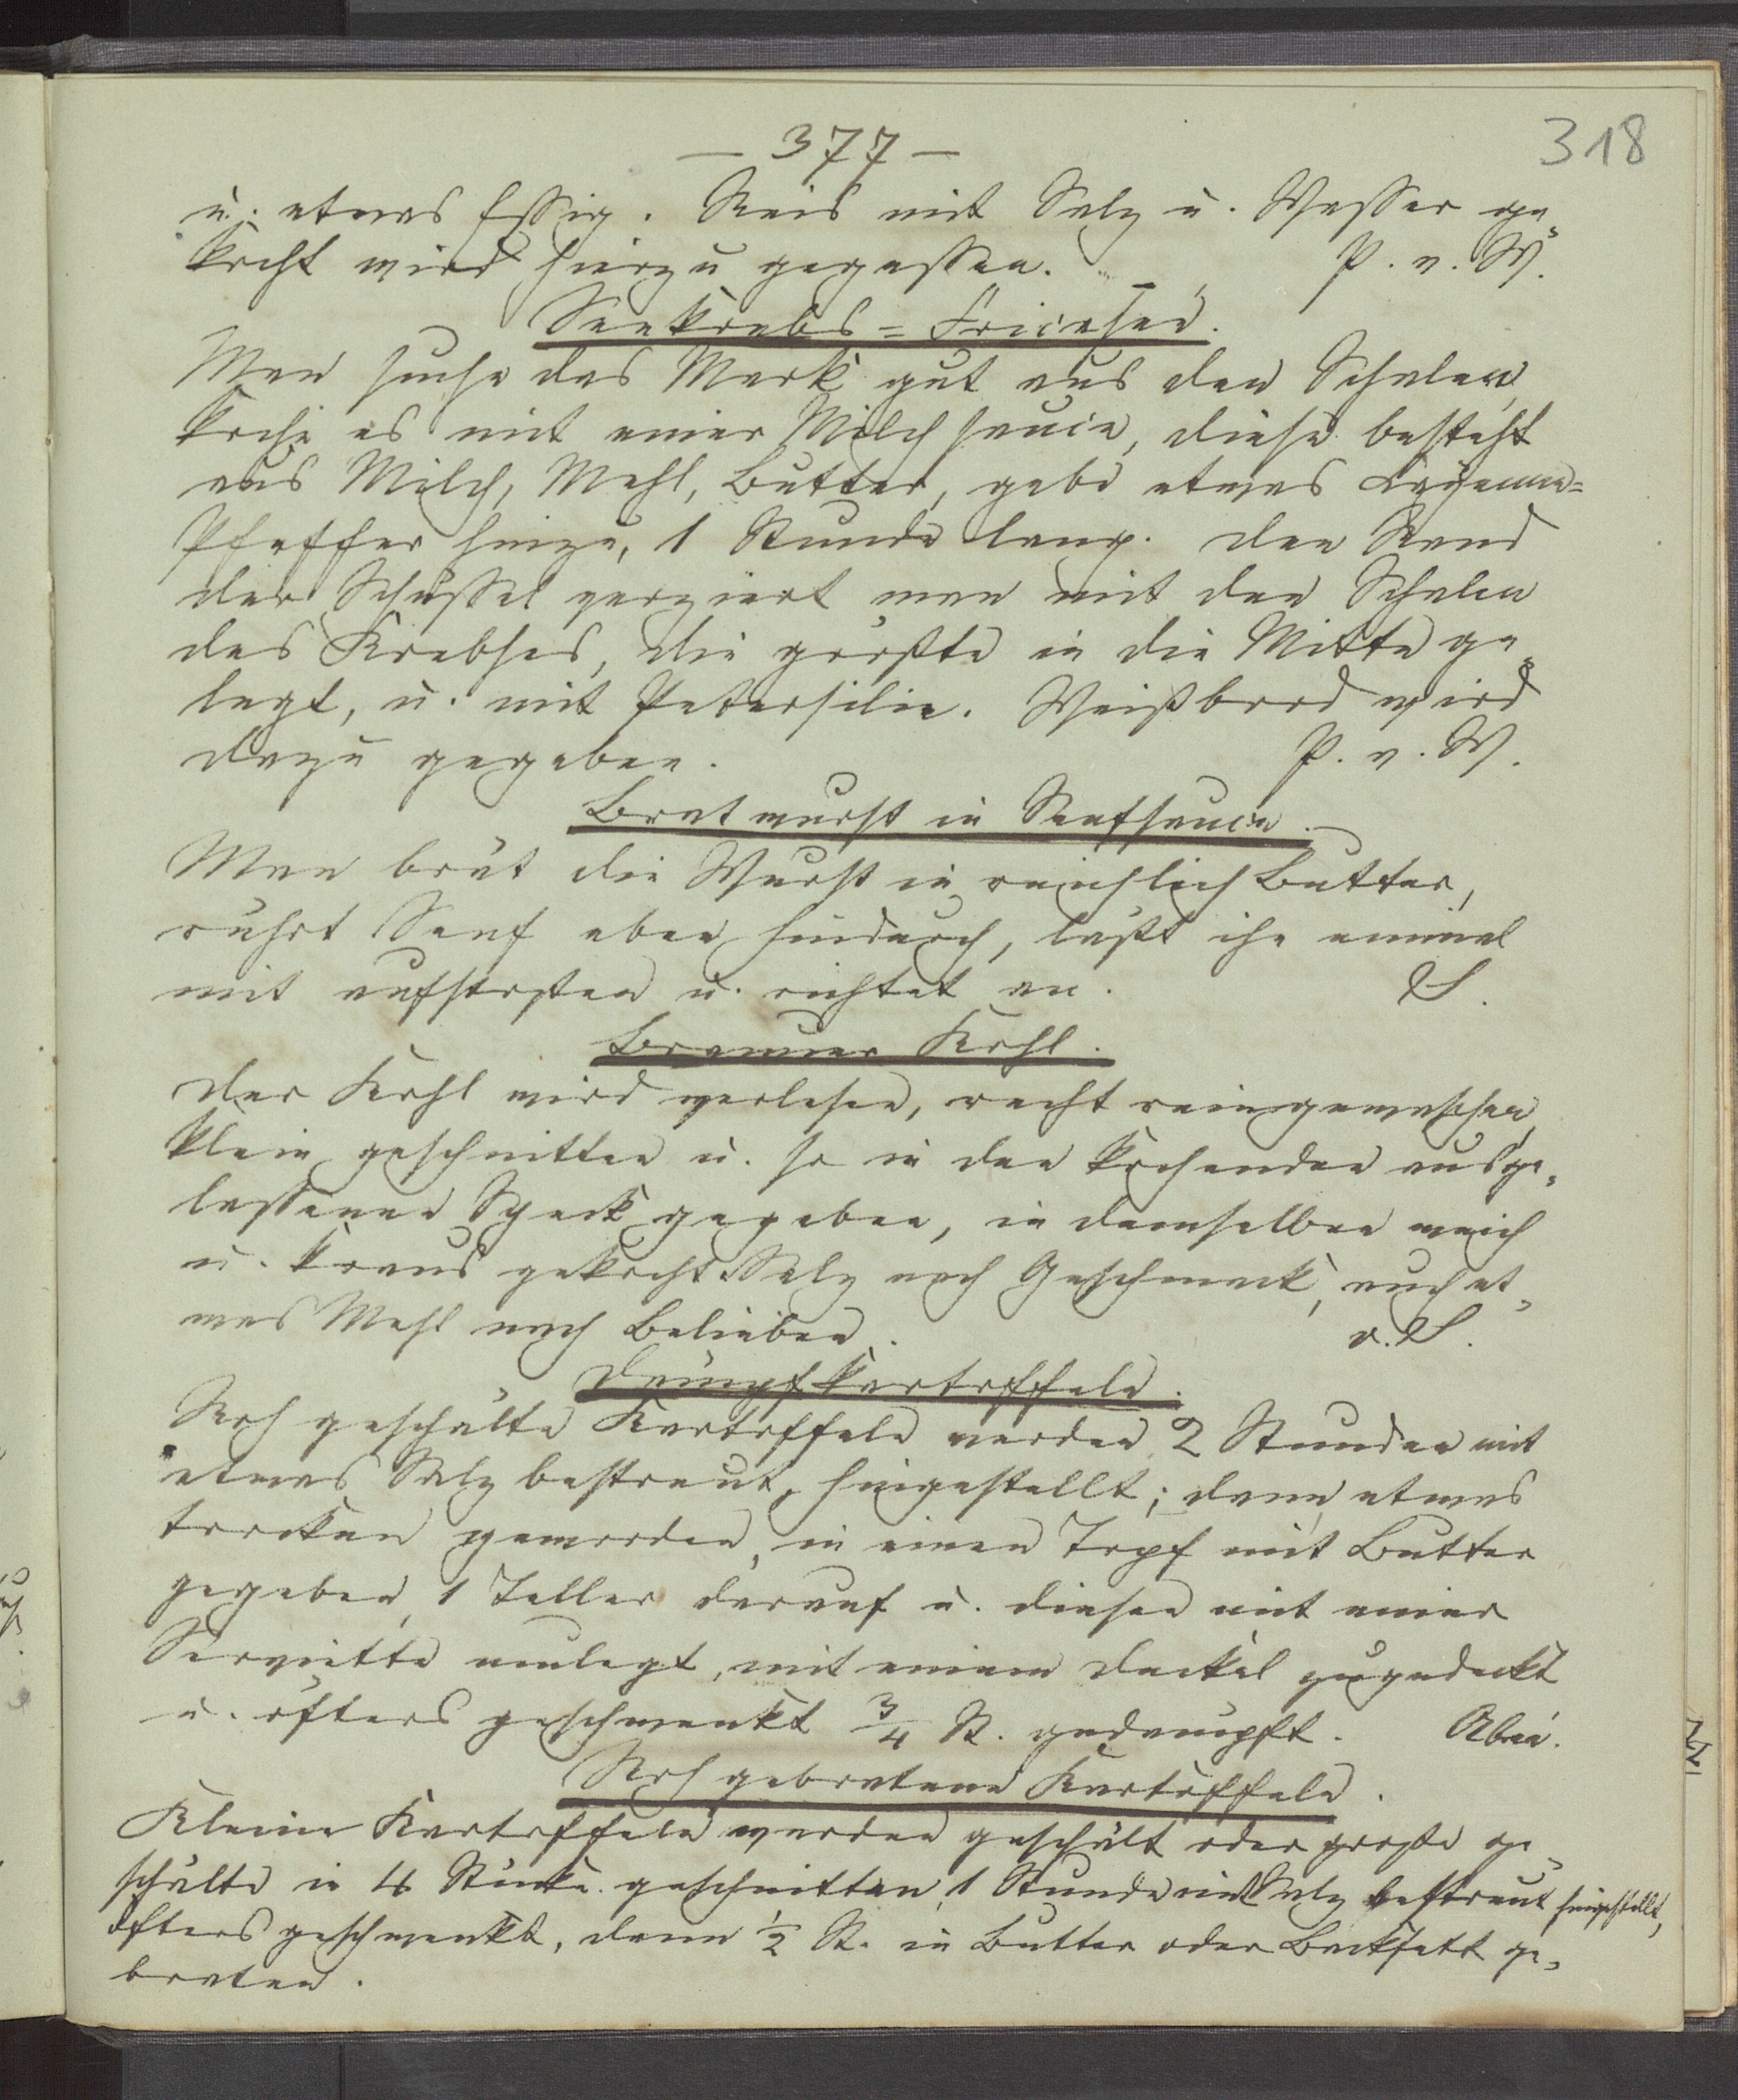 318
— 377 —
u. etwas Essig. Reis mit Salz u. Wasser ge„
kocht wird hierzu gegessen. P. v. W.
Seekrebs=Fricasee.
Man suche das Mark gut aus den Schalen,
koche es mit einer Milchsauce, diese besteht
aus Milch, Mehl, Butter, gebe etwas Cayenne=
Pfeffer hinzu, 1 Stunde lang. Den Rand
der Schüssel verziert man mit den Schalen
des Krebses, die größte in die Mitte ge„
legt, u. mit Petersilie. Weißbrod wird
dazu gegeben. P. v. W.
Bratwurst in Senfsauce.
Man brät die Wurst in reichlich Butter,
rührt Senf eben hindurch, läßt ihn einmal
mit aufstoßen u. richtet an. S.
Brauner Kohl.
Der Kohl wird verlesen, recht rein gewaschen,
klein geschnitten u. so in den kochenden ausge„
lassenen Speck gegeben, in demselben weich
u. kraus gekocht. Salz nach Geschmack, auch et„
was Mehl nach Belieben. v. S.
Dampfkartoffeln.
Roh geschälte Kartoffeln werden 2 Stunden mit
etwas Salz bestreut, hingestellt; dann etwas
trocken geworden, in einen Topf mit Butter
gegeben, 1 Teller darauf u. diesen mit einer
Serviette umlegt, mit einem Deckel zugedeckt
u. öfters geschwenkt 3/4 St. gedämpft.
Roh gebratene Kartoffeln.
Kleine Kartoffeln werden geschält oder große ge„
schälte in 4 Stücke geschnitten, 1 Stunde mit Salz bestreut hingestellt,
öfters geschwenkt, dann 1/2 St. in Butter oder Backfett ge„
braten.